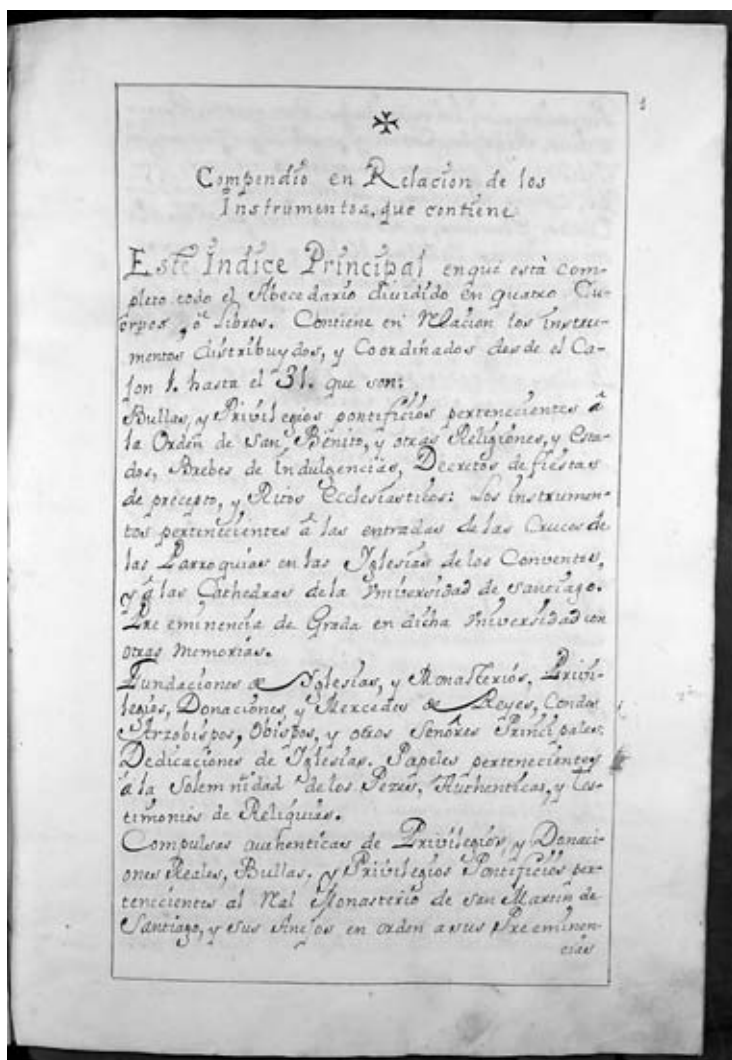 1
Compendio en Relacion de los
Instrumentos, que contiene
Este Indice Principal en què està com-
pleto todo el Abecedario dividido en quatro Cu-
erpos, ô Libros. Contiene en Relacion los instru-
mentos distribuydos, y Coordinados desde el Ca-
jon 1. hasta el 31. que son:
Bullas, y Privilegios pontificios pertenecientes â
la Orden de san Benito, y otras Religiones, y Esta-
dos, Brebes de Indulgencias, Decretos de fiestas
de precepto, y Ritos Ecclesiasticos: Los instrumen-
tos pertenecientes â las entradas de las Cruces de
las Parroquias en las Yglesias de los Conventos,
y â las Cathedras de la Vniversidad de Santiago.
Pre eminencia de Grada en dicha Vniversidad con
otras memorias.
Fundaciones de Yglesias, y Monasterios, Privi-
legios, Donaciones, y Mercedes de Reyes, Condes
Arzobispos, Obispos, y otros Señores Principales.
Dedicaciones de Yglesias. Papeles pertenecientes
â la Solemnidad de los Authenticas, y tes-
timonios de Reliquias.
Compulsas authenticas de Privilegios, y Donaci-
ones Reales, Bullas, y Privilegios Pontificios per-
tenecientes al Rl. Monasterio de san Martin de
Santiago, y sus Anejos en orden a sus Pre eminen-
cias